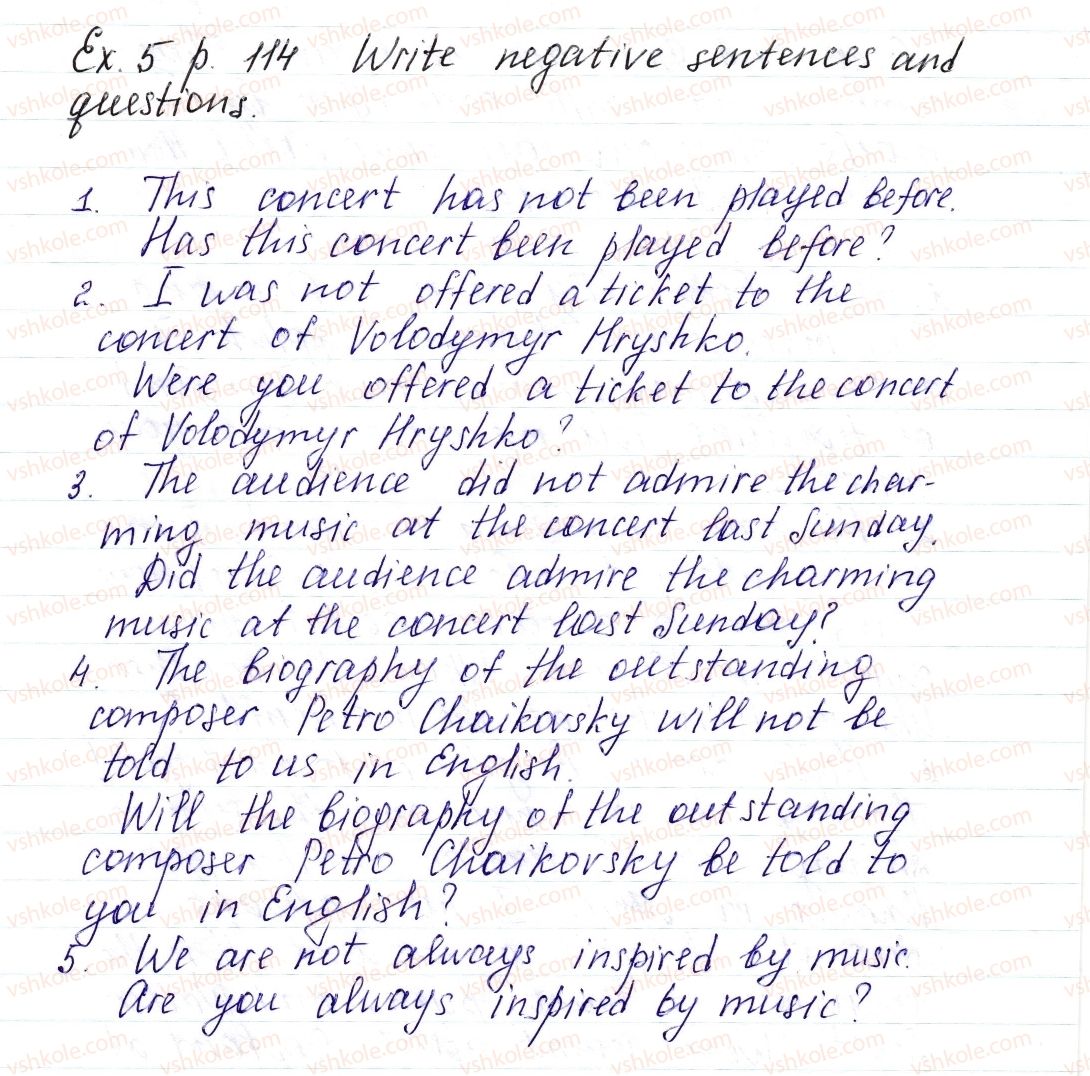 Ex. 5 p. 114 Write negative sentences and
questions.
1. This concert has not been played before.
Has this concert been played before?
2. I was not offered a ticket to the
concert of Volodymyr Hryshko.
Were you offered a ticket to the concert
of Volodymyr Hryshko?
3. The audience did not admire the char-
ming music at the concert last Sunday.
Did the audience admire the charming
music at the concert last Sunday?
4. The biography of the outstanding
composer Petro Chaikovsky will not be
told to us in English.
Will the biography of the outstanding
composer Petro Chaikovsky be told to
you in English?
5. We are not always inspired by music.
Are you always inspired by music?